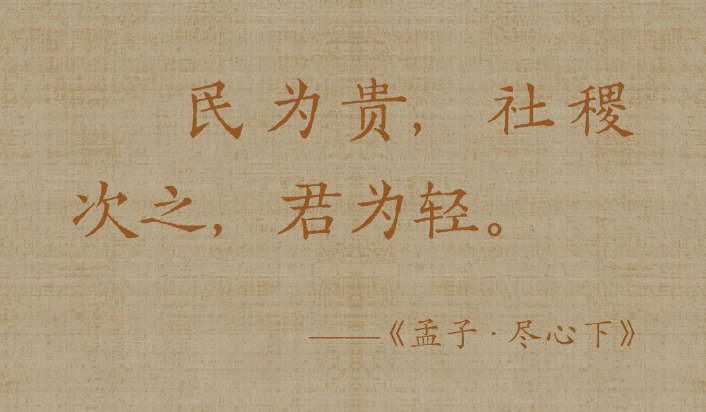 民为贵，社稷
次之，君为轻。
——《孟子·尽心下》